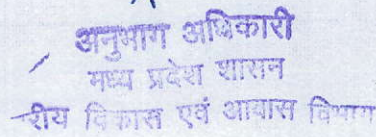 अनुभाग अधिकारी
मध्य प्रदेश शासन
रीय विकास एवं आवास विभाग